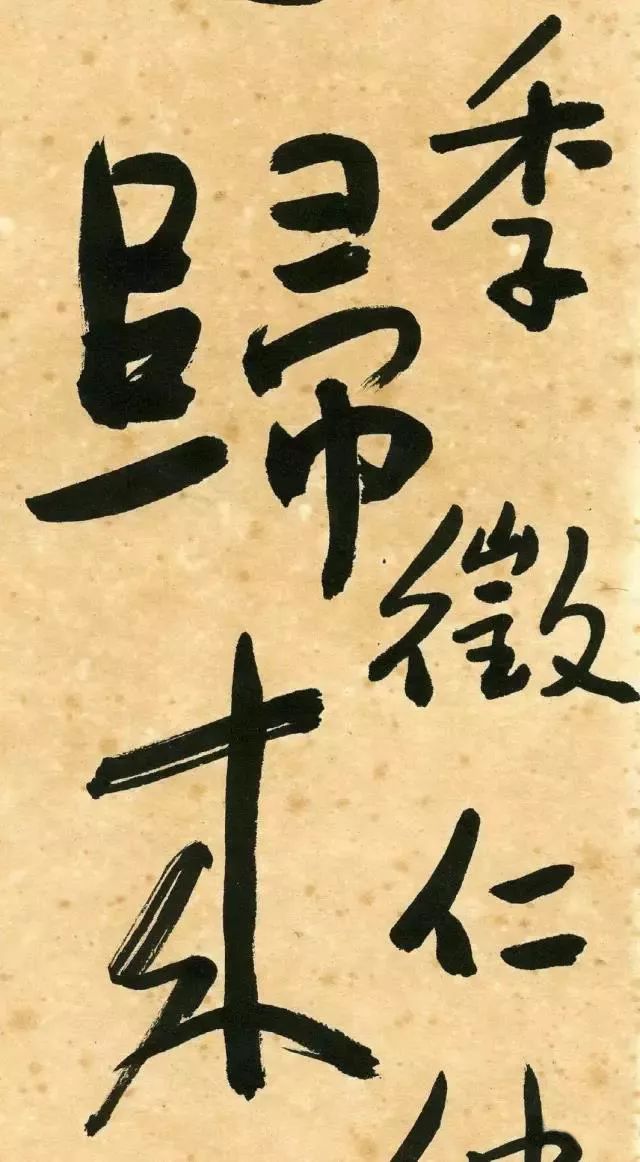 季徵仁
歸來